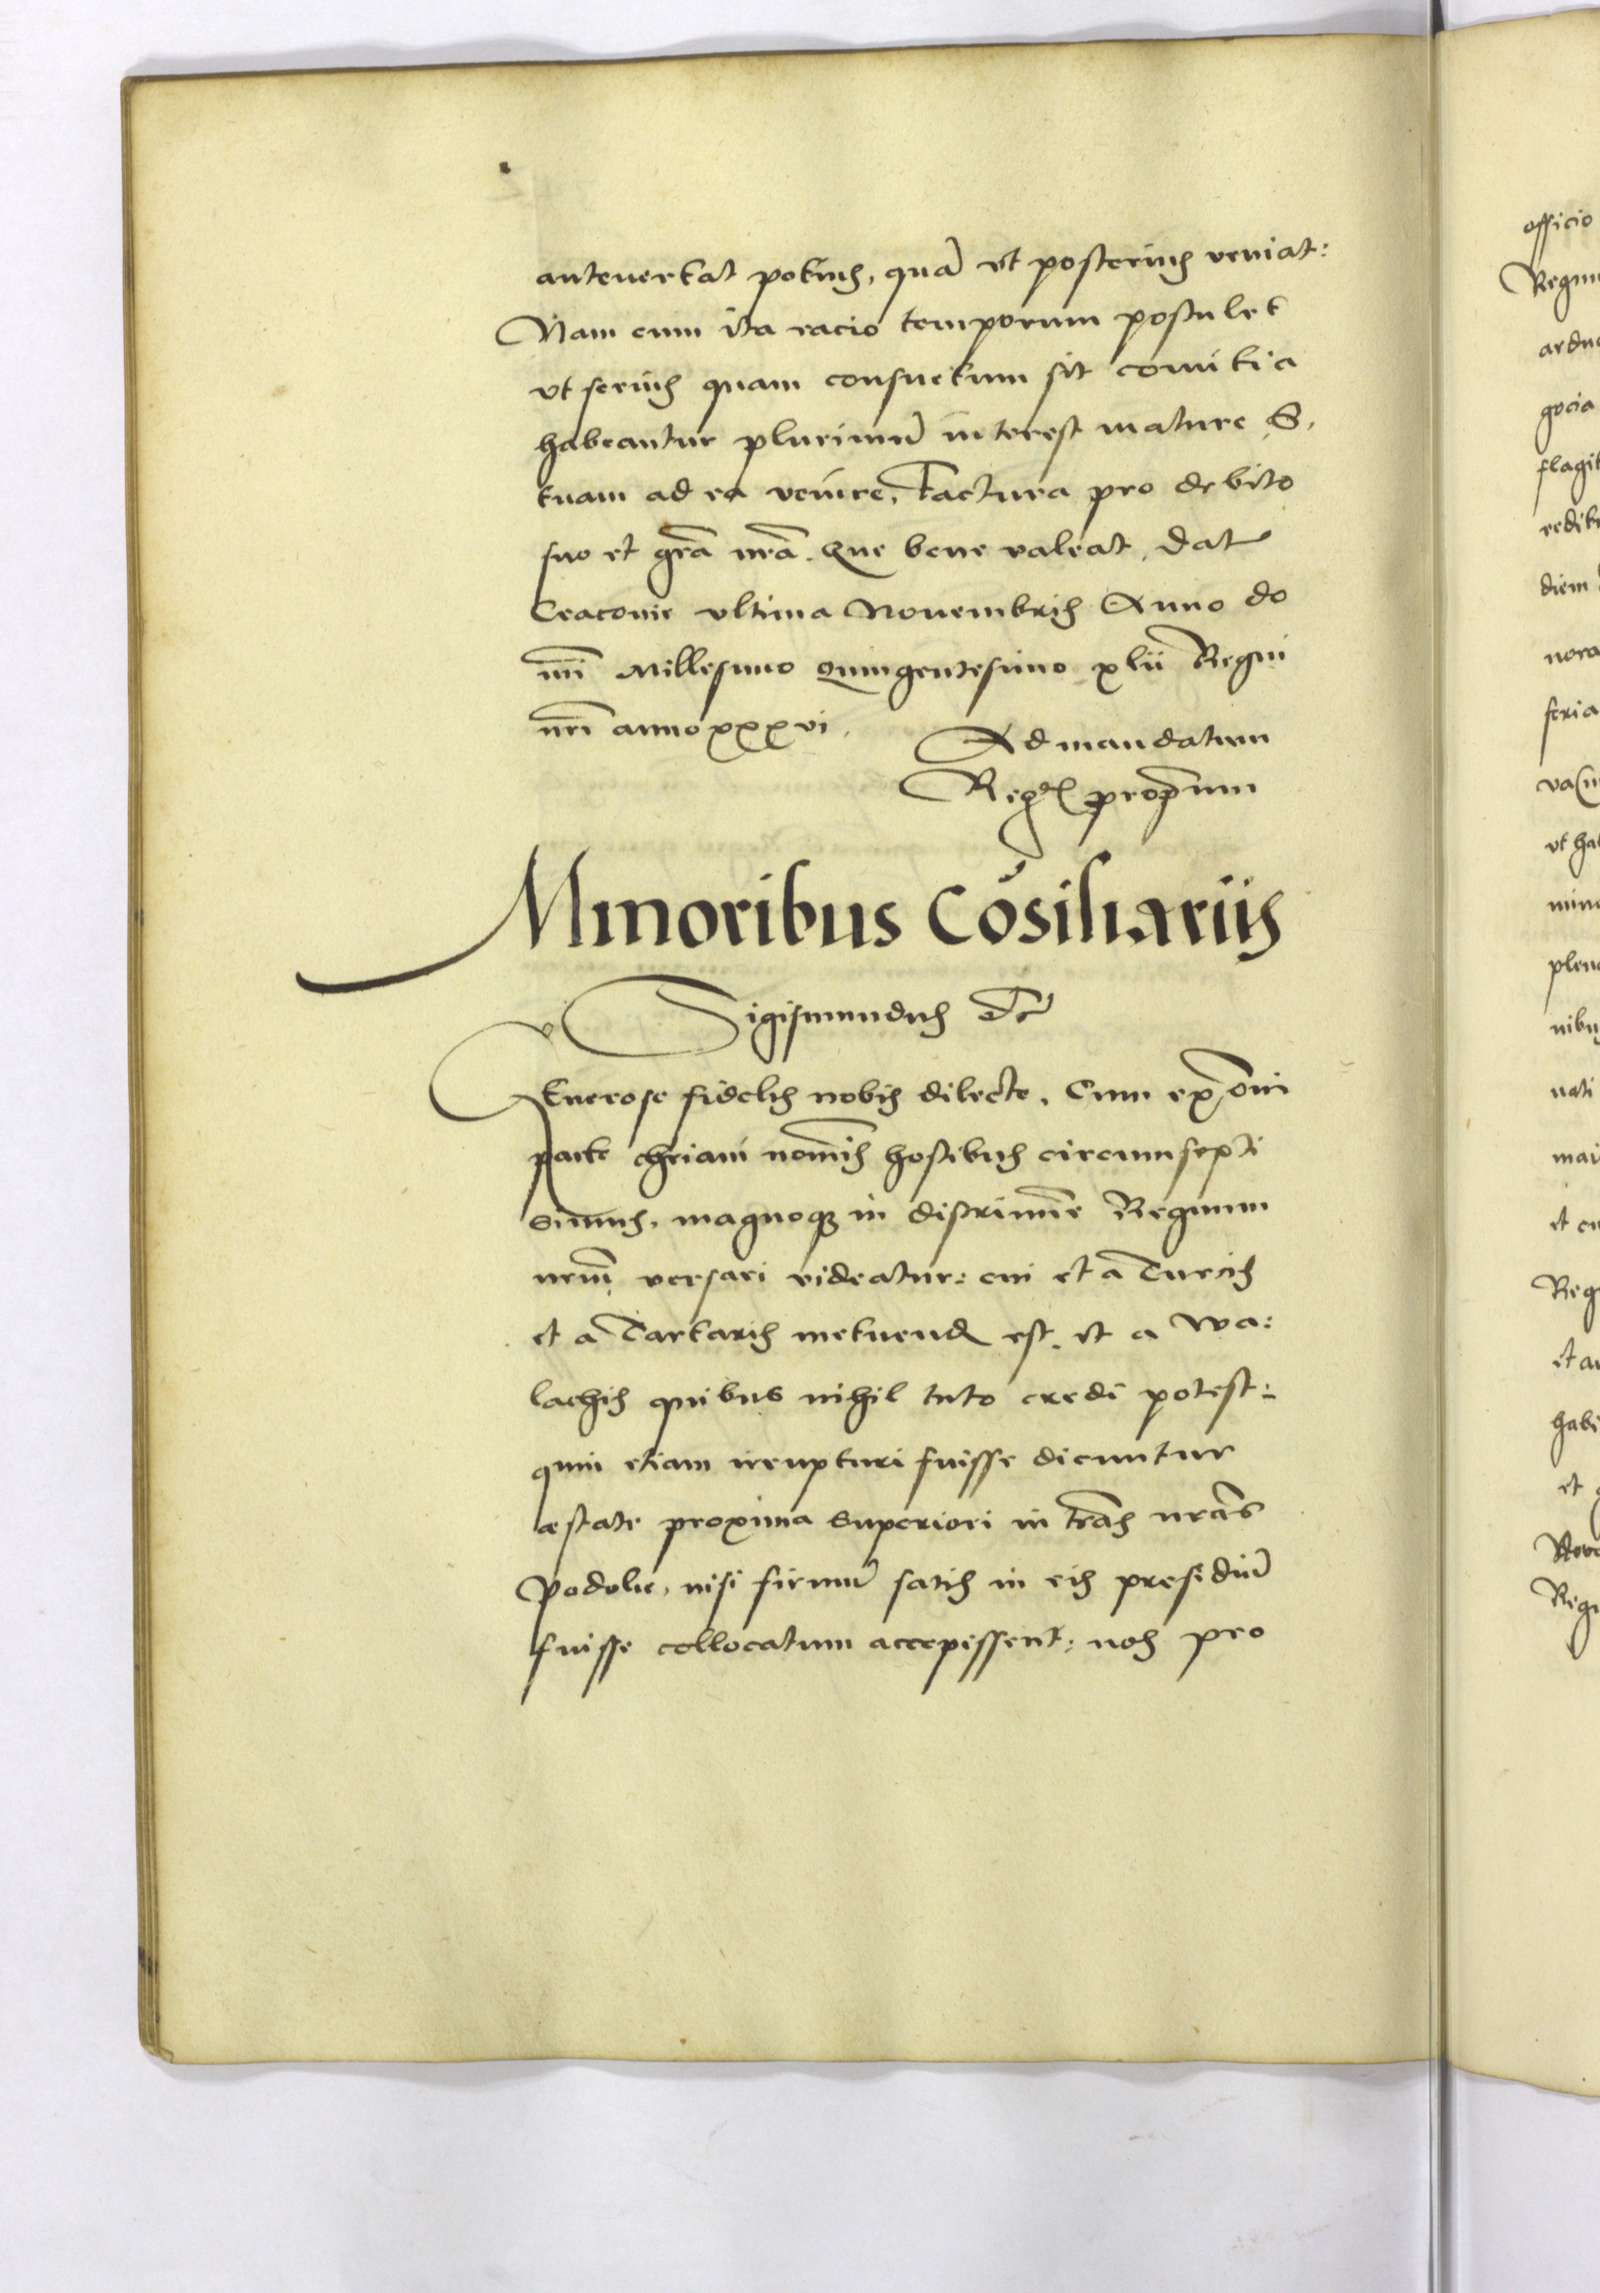 antevertat potius, quã vt posterius veniat:
Nam cum ita racio temporum postulet
vt serius quam consuetum sit comitia
habeantur plurimũ interest mature S.
tuam ad ea venire, Factura pro debito
suo et grã nrã. Que bene valeat. Dat
Cracovie vltima Novembris Anno do
mi Millesimo quingentesimo xlii Regni
nri anno xxxvi.
Ad mandatum
Regis proprium
Minoribus Cõsiliariis
Sigismundus etc
Generose fidelis nobis dilecte. Cum ex omi
parte chriani nominis hostibus circumsepti
simus, magnoq; in discrimine Regnum
nrum versari videatur: cui et a Turcis
et a Tartaris metuend est. et a Wa:
lachis quibus nihil tuto credi potest:
quin etiam irrupturi fuisse dicuntur
æstate proxima superiori in trãs nrãs
Podolie, nisi firmũ satis in eis presidiũ
fuisse collocatum accepissent: nos pro
officio
flagit
diem
nora
feria
vt hab
plen
nibus
nati
et
Reg
habe
et
Regn